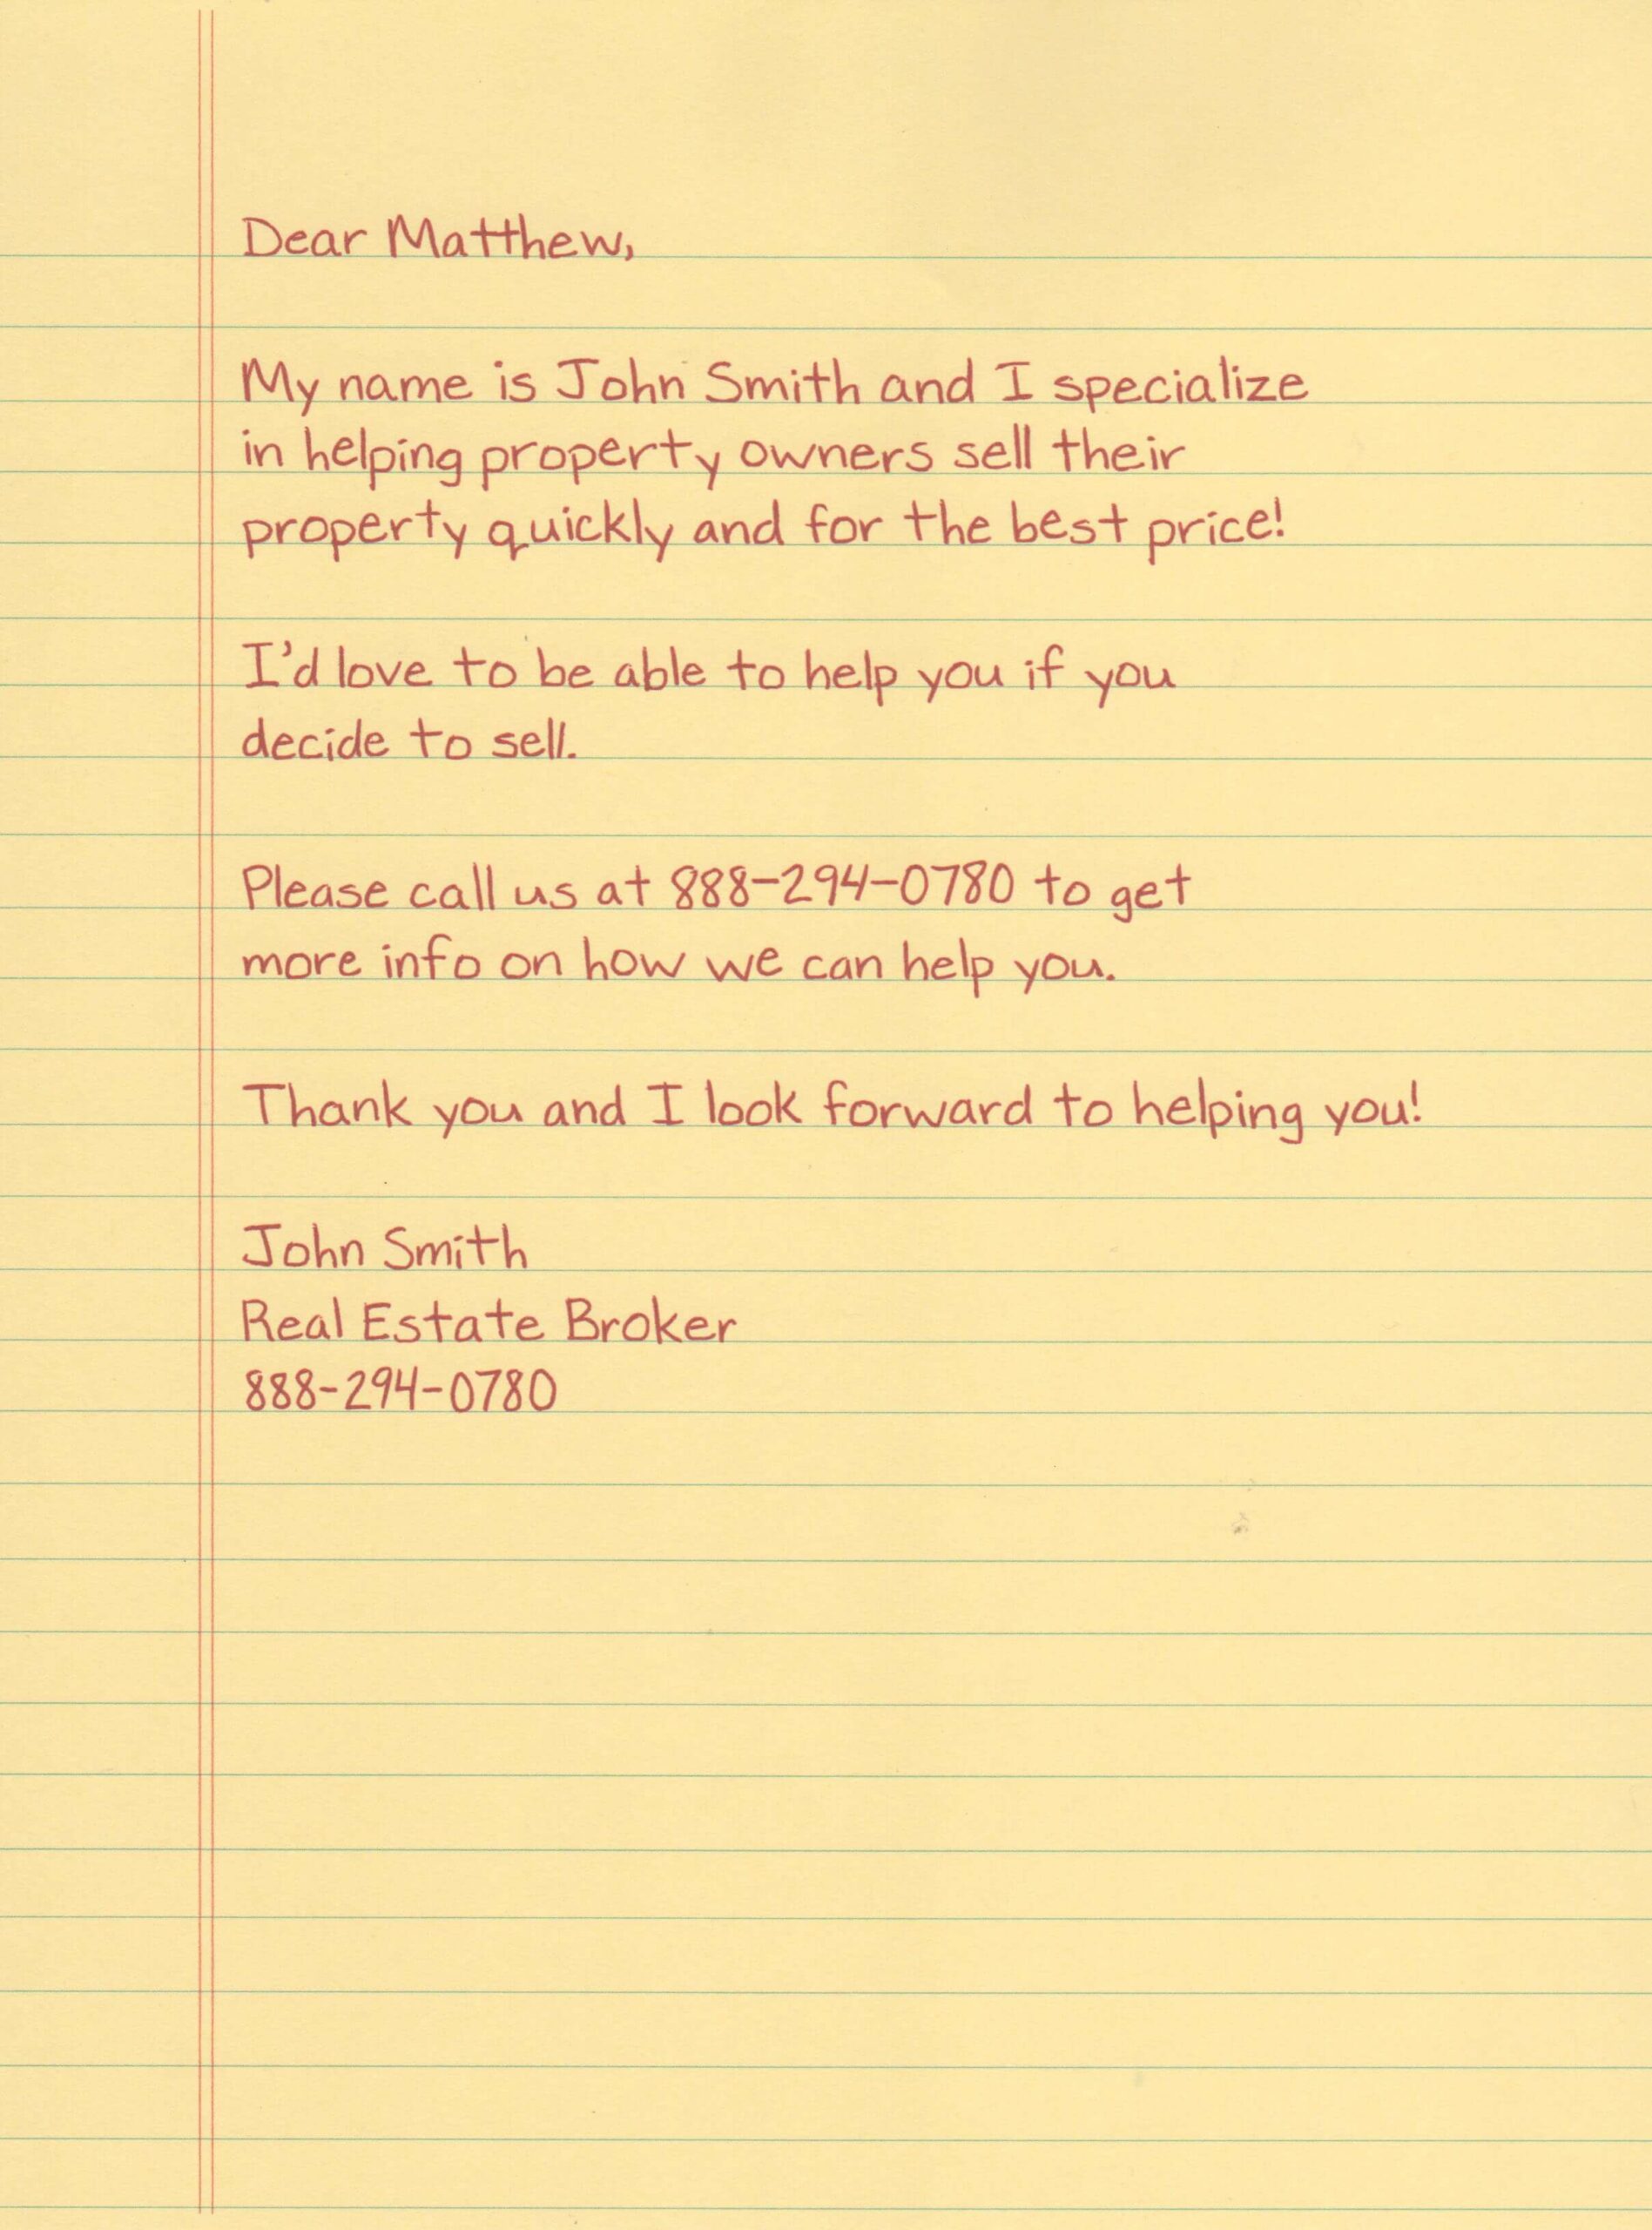 Dear Matthew,
My name is John Smith and I specialize
in helping property owners sell their
property quickly and for the best price!
I'd love to be able to help you if you
decide to sell.
Please call us at 888-294-0780 to get
more info on how we can help you.
Thank you and I look forward to helping you!
John Smith
Real Estate Broker
888-294-0780